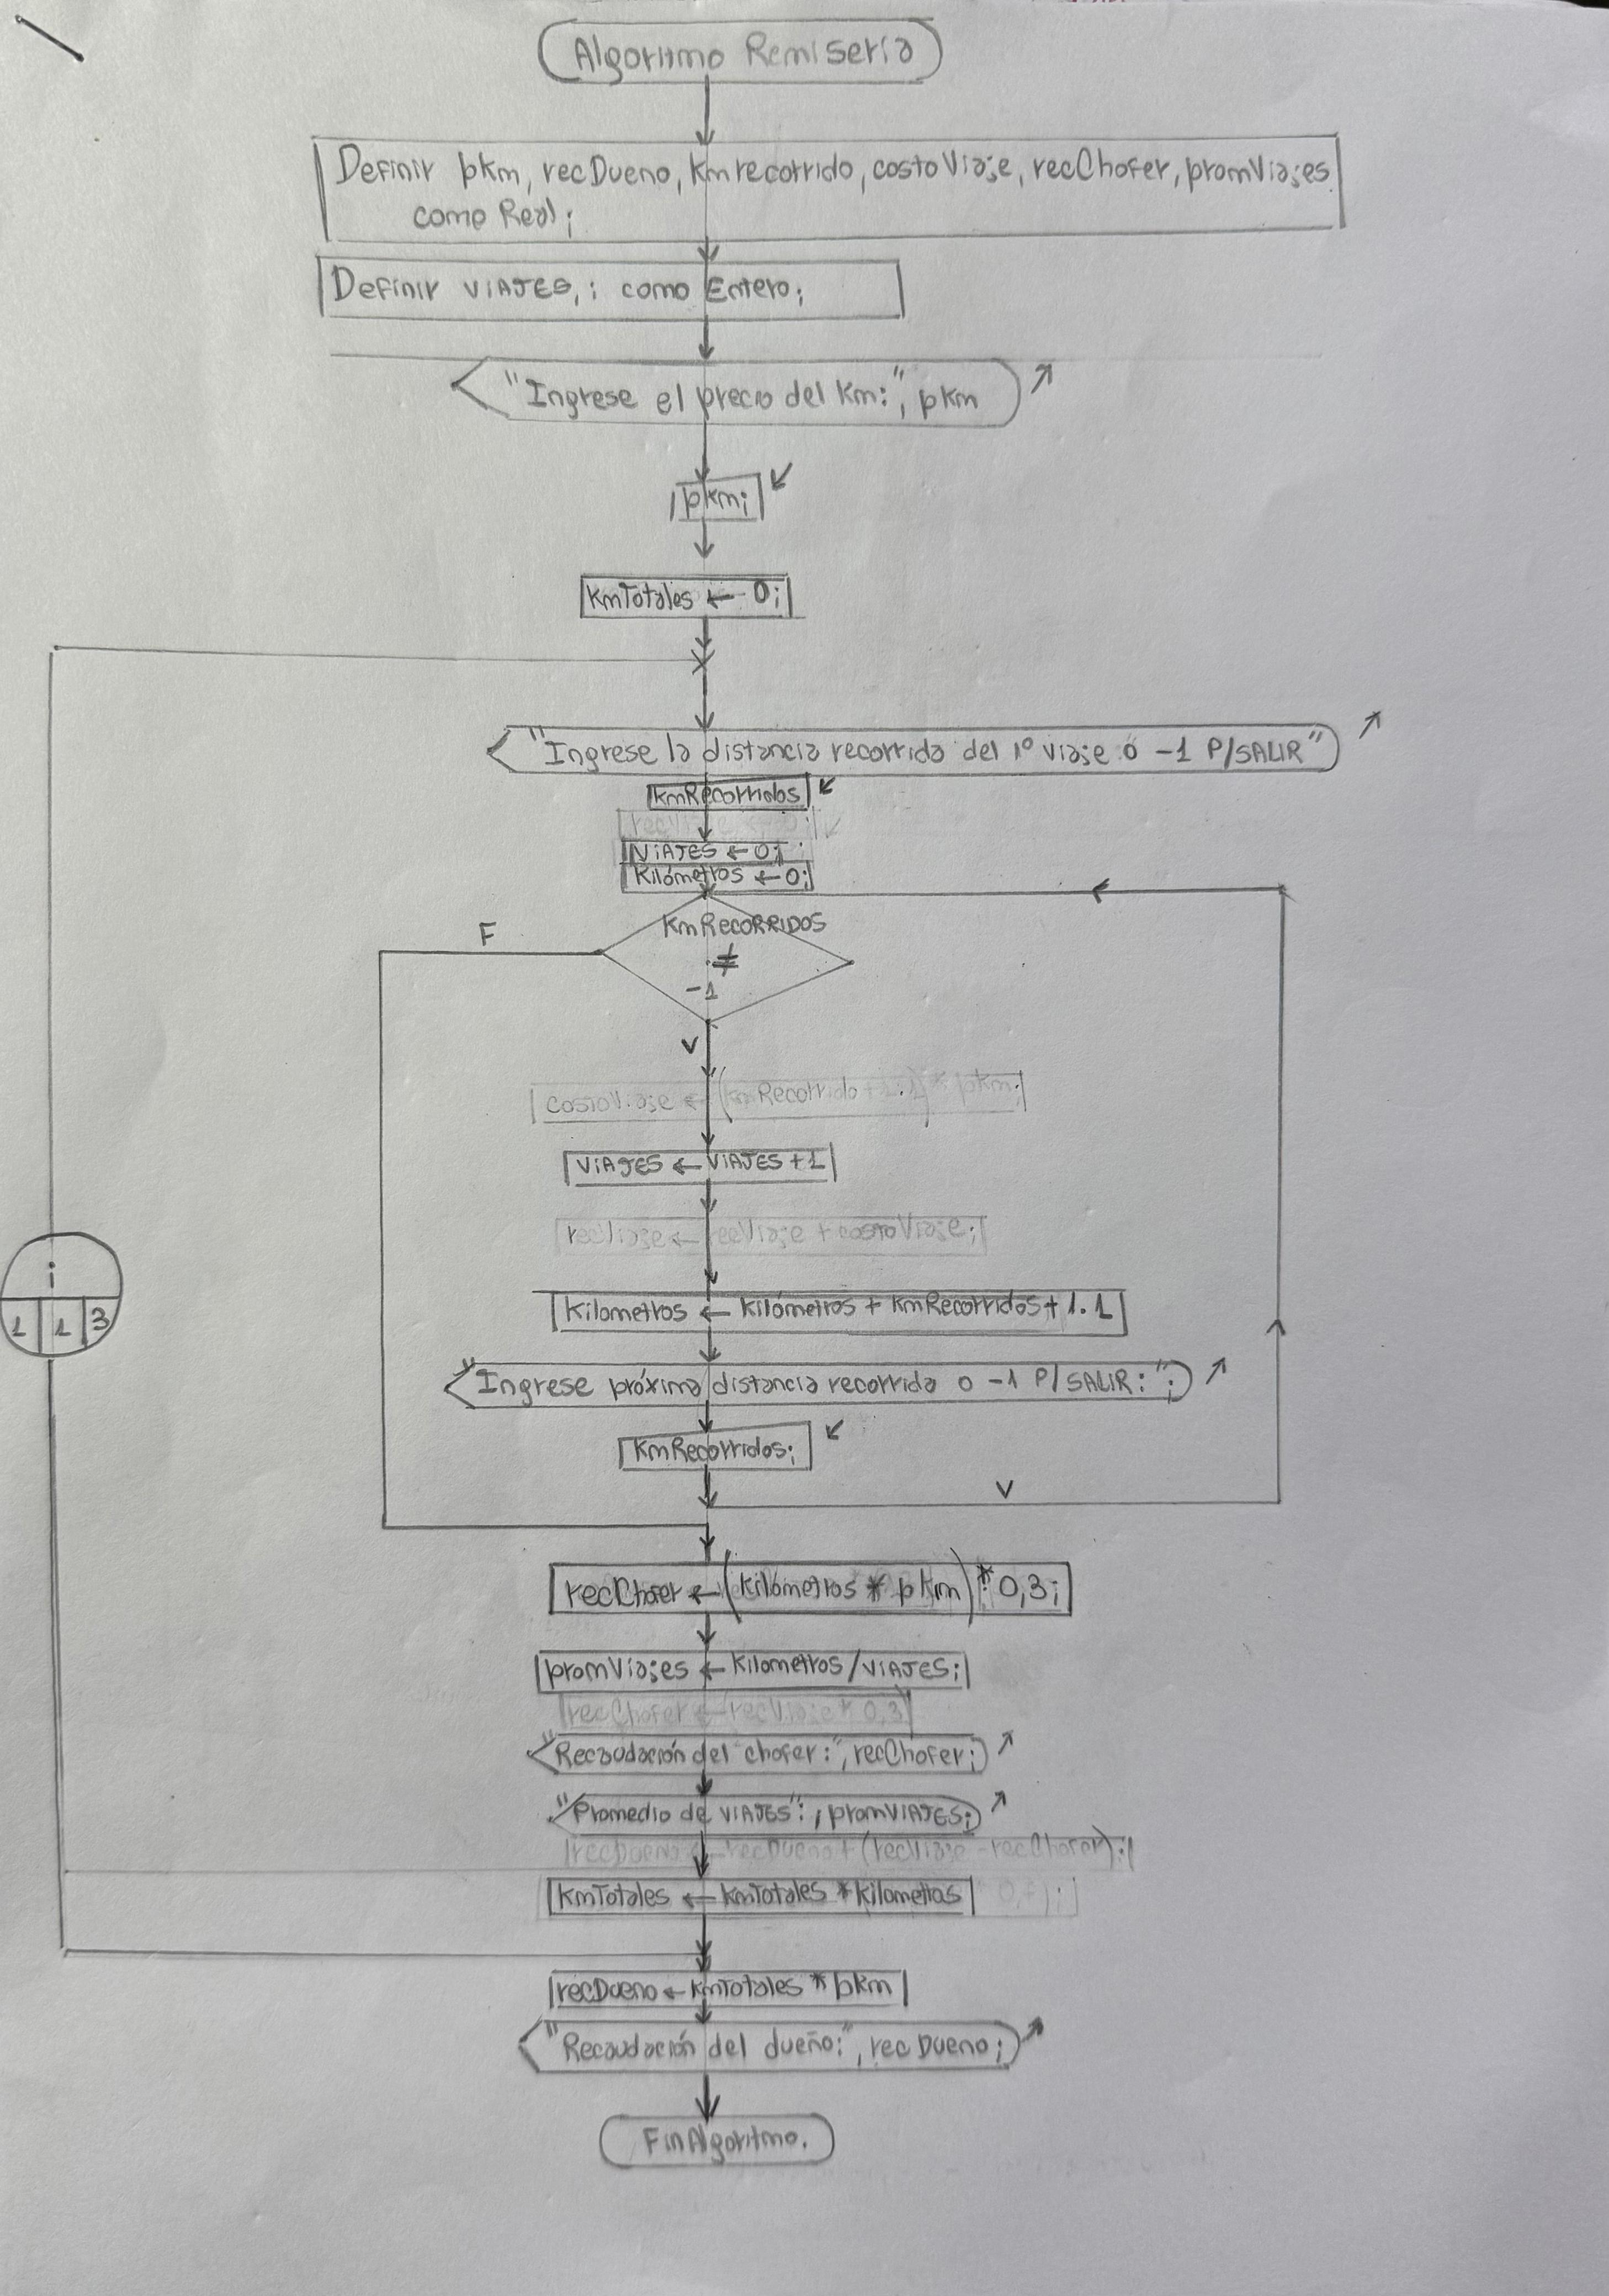 Algoritmo Remiseria
Definir pkm, recDueno, kmrecorrido, costoViaje, recChofer, promViajes
como Real;
Definir VIAJES, i como Entero;
"Ingrese el precio del Km:", pkm
pkm;
kmTotales ← 0;
"Ingrese la distancia recorrida del 1º viaje o -1 P/SALIR"
kmRecorridos
VIAJES ← 0;
Kilómetros ← 0;
KmRECORRIDOS
≠
-1
F
V
costoViaje ← (kmRecorrido + 1.1) * pkm;
VIAJES ← VIAJES + 1
recViaje ← recViaje + costoViaje;
i
1 1 3
Kilometros ← kilómetros + kmRecorridos + 1.1
"Ingrese próxima distancia recorrida o -1 P/SALIR:";
KmRecorridos;
V
recChofer ← (kilómetros * pkm) * 0,3;
promViajes ← Kilometros/VIAJES;
recChofer ← recViaje * 0,3
"Recaudación del chofer:", recChofer;
"Promedio de VIAJES":, promVIAJES;
recDueno ← recDueno + (recViaje - recChofer);
kmTotales ← kmTotales * kilometros
recDueno ← kmTotales * pkm
"Recaudación del dueño:", rec Dueno;
FinAlgoritmo.